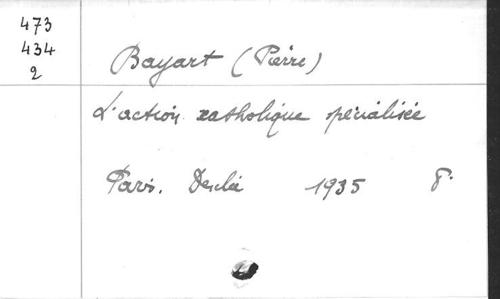 473
434
2
Bayart (Pierre)
L'action catholique spécialisée
Paris. Desclée 1935 8°